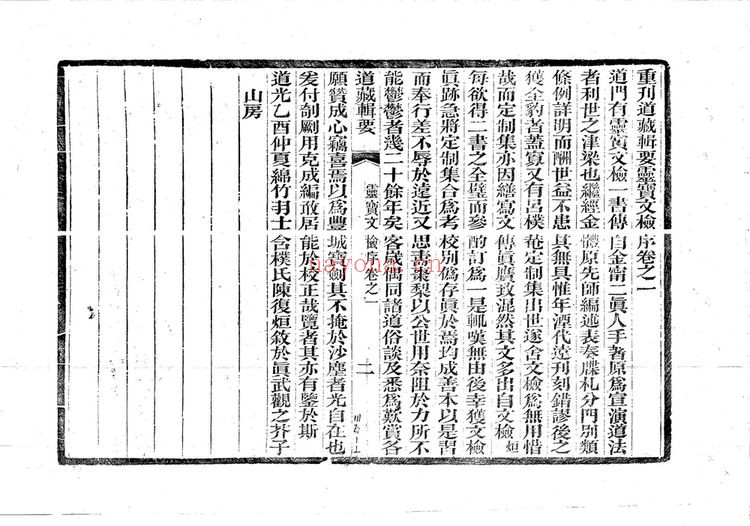 重刊道藏輯要靈寳文檢序卷之一
道門有靈寳文檢一書傳自金甯二眞人手著原爲宣演道法
者利世之津梁也繼經金體原先師編述表奏牒札分門別類
條例詳明而酬世益不患其無具惟年湮代遠刊刻錯謬後之
獲全豹者蓋寡又有呂樸菴定制集出世遂舍文檢爲無用惜
哉而定制集亦因繕寫文傳眞廣致混然其文多出自文檢烜
每欲得一書之全璧而參酌訂爲一是輒嘆無由後幸獲文檢
眞跡急將定制集合爲考校別爲存眞於焉均成善本以是習
而奉行差不辱於遠近又思壽棗梨以公世用奈阻於力所不
能鬱鬱者幾二十餘年矣客歲偶同諸道俗談及悉爲歎賞各
道藏輯要
靈寳文檢序卷之一
二
願贊成心竊喜焉以爲豐城寳劍其不掩於沙塵者光自在也
爰付剞劂用克成編敢居能於校正哉覽者其亦有鑒於斯
道光乙酉仲夏綿竹羽士含樸氏陳復烜敘於眞武觀之芥子
山房
nayona.cn